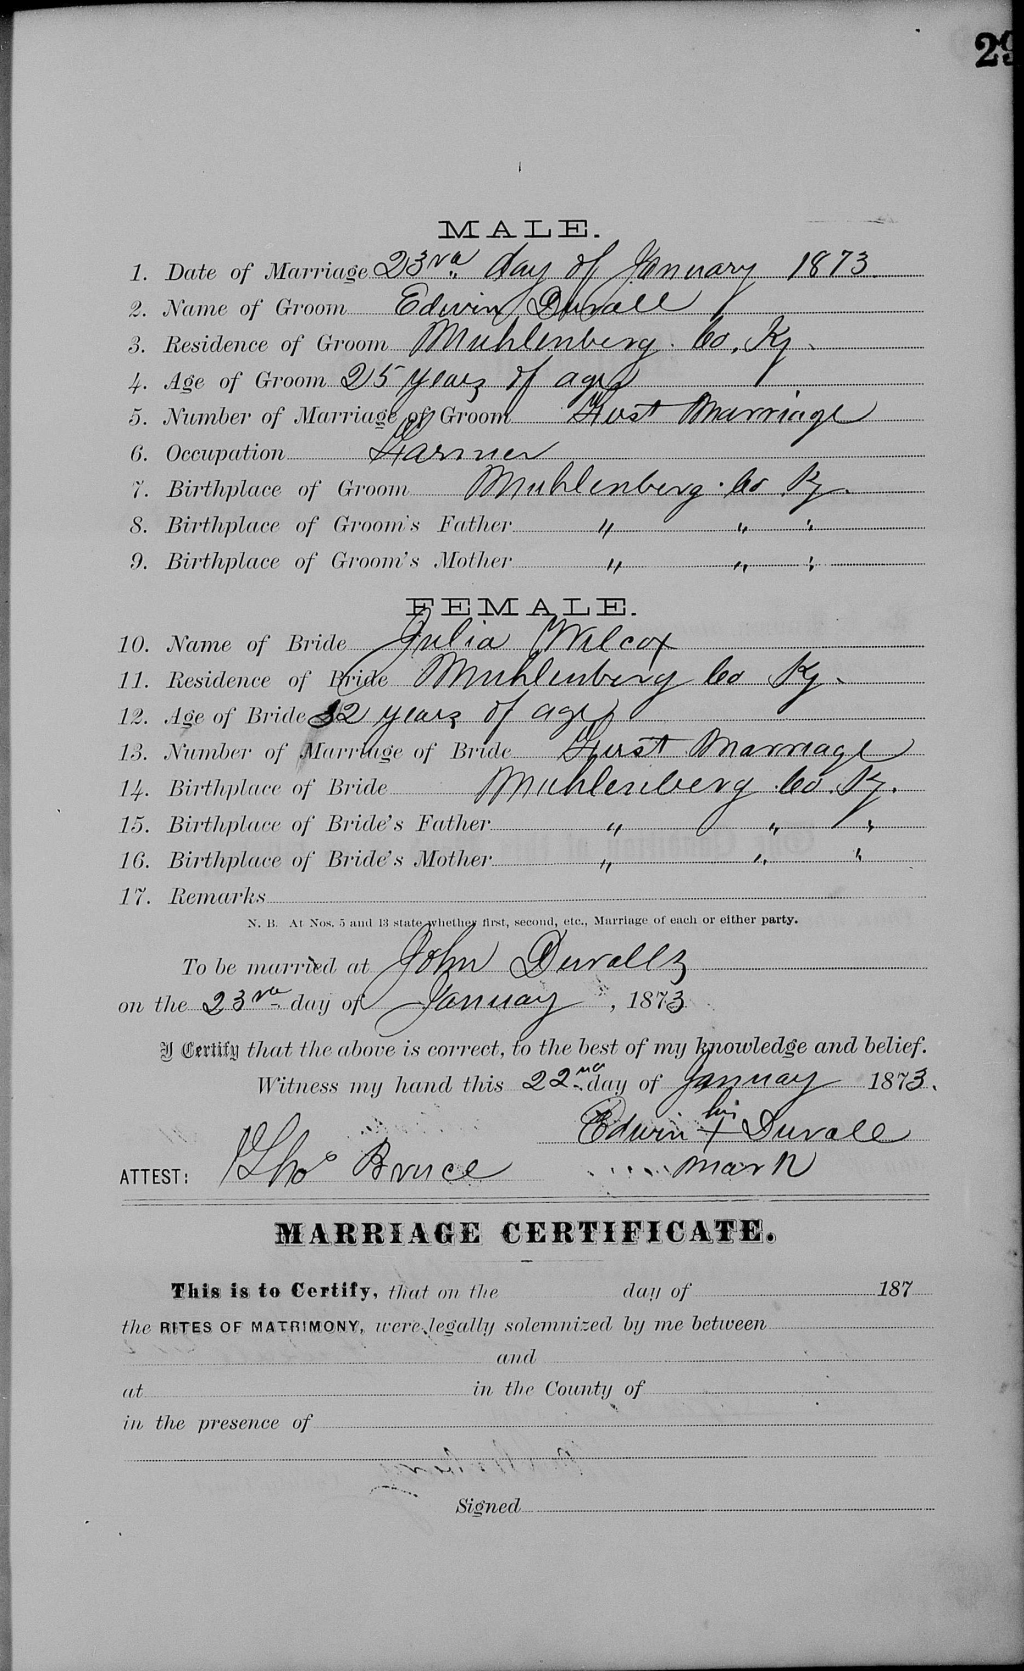 29
MALE.
1. Date of Marriage 23rd day of January 1873
2. Name of Groom Edwin Duvall
3. Residence of Groom Muhlenberg Co. Ky.
4. Age of Groom 25 years of age
5. Number of Marriage of Groom First Marriage
6. Occupation Farmer
7. Birthplace of Groom Muhlenberg Co Ky.
8. Birthplace of Groom's Father " " "
9. Birthplace of Groom's Mother " " "
FEMALE.
10. Name of Bride Julia Wilcox
11. Residence of Bride Muhlenberg Co Ky.
12. Age of Bride 32 years of age
13. Number of Marriage of Bride First Marriage
14. Birthplace of Bride Muhlenberg Co. Ky.
15. Birthplace of Bride's Father " " "
16. Birthplace of Bride's Mother " " "
17. Remarks
N. B. At Nos. 5 and 13 state whether first, second, etc., Marriage of each or either party.
To be married at John Duvalls
on the 23rd day of January, 1873
I Certify that the above is correct, to the best of my knowledge and belief.
Witness my hand this 22nd day of January 1873.
his
Edwin + Duvall
ATTEST: Thos Bruce mark
MARRIAGE CERTIFICATE.
This is to Certify, that on the day of 187
the RITES OF MATRIMONY, were legally solemnized by me between
and
at in the County of
in the presence of
Signed